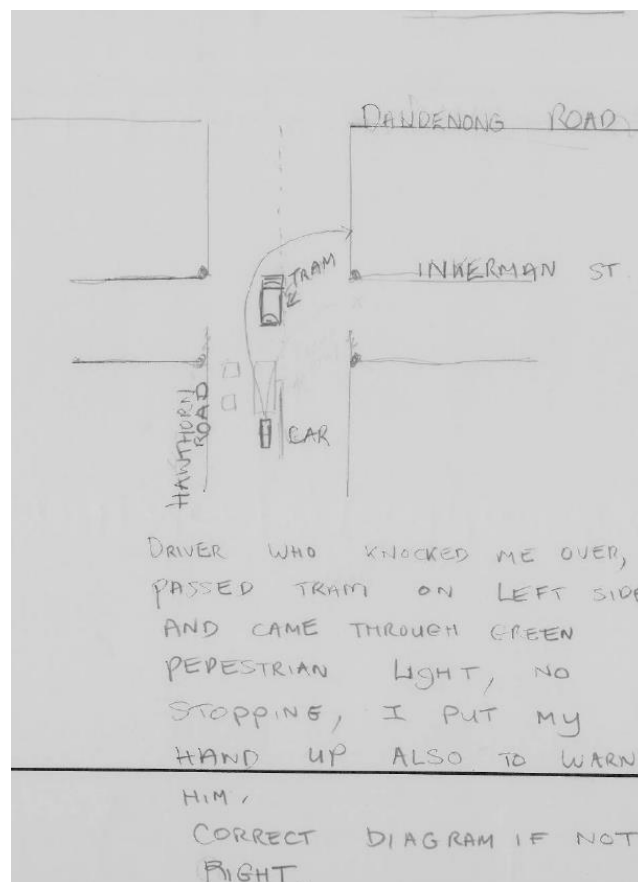 DANDENONG ROAD
TRAM
INKERMAN ST
HAWTHORN
ROAD
CAR
DRIVER WHO KNOCKED ME OVER,
PASSED TRAM ON LEFT SIDE
AND CAME THROUGH GREEN
PEDESTRIAN LIGHT, NO
STOPPING, I PUT MY
HAND UP ALSO TO WARN
HIM,
CORRECT DIAGRAM IF NOT
RIGHT